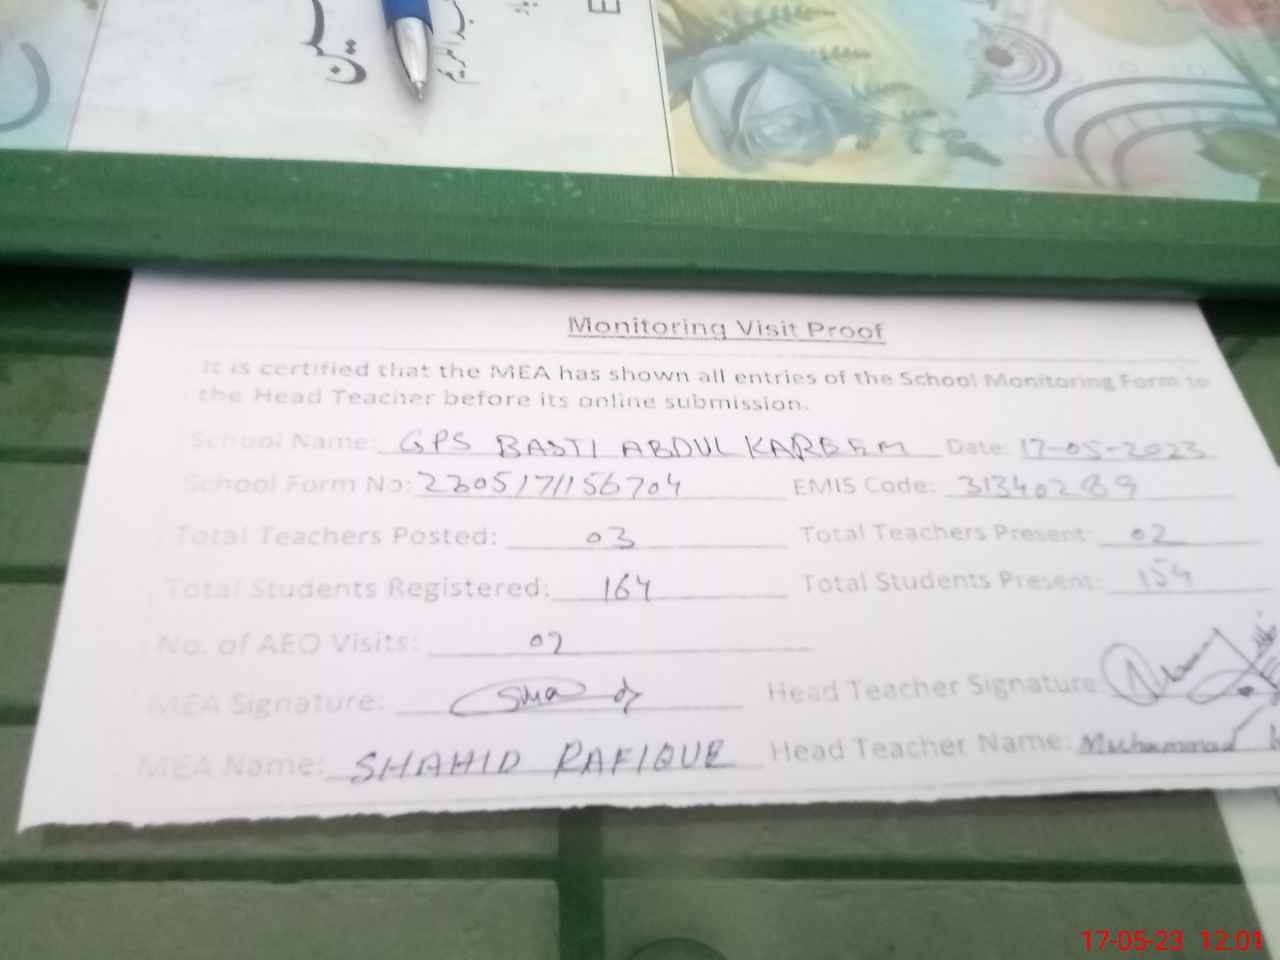 Monitoring Visit Proof
It is certified that the MEA has shown all entries of the School Monitoring Form to
the Head Teacher before its online submission.
School Name: GPS BASTI ABDUL KAREEM Date: 17-05-2023
School Form No: 230517/156704 EMIS Code: 31340289
Total Teachers Posted: 03 Total Teachers Present: 02
Total Students Registered: 164 Total Students Present: 154
No. of AEO Visits: 02
MEA Signature: Head Teacher Signature:
MEA Name: SHAHID RAFIQUE Head Teacher Name: Muhammad
17-05-23 12:01